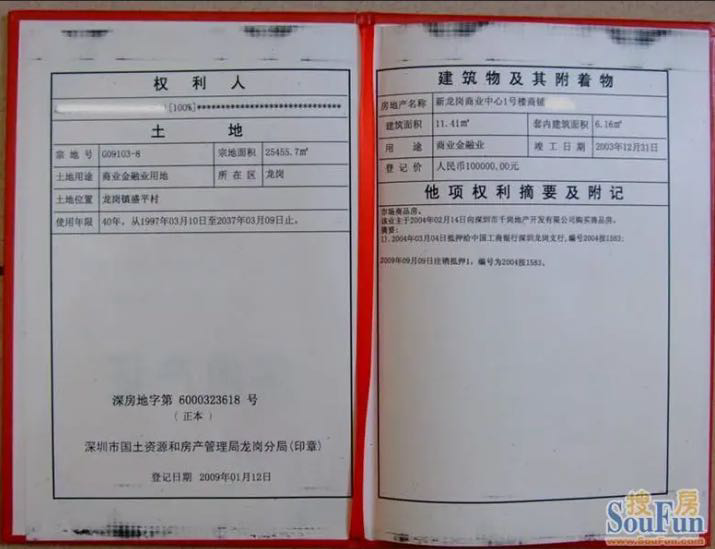 权利人
[100%]********************************
土地
宗地号 G09103-8 宗地面积 25455.7㎡
土地用途 商业金融业用地 所在区 龙岗
土地位置 龙岗镇盛平村
使用年限 40年，从1997年03月10日至2037年03月09日止。
深房地字第 6000323618 号
(正本)
深圳市国土资源和房产管理局龙岗分局(印章)
登记日期 2009年01月12日
建筑物及其附着物
房地产名称 新龙岗商业中心1号楼商铺
建筑面积 11.41㎡ 套内建筑面积 6.16㎡
用途 商业金融业 竣工日期 2003年12月31日
登记价 人民币100000.00元
他项权利摘要及附记
市场商品房。
该业主于2004年02月14日向深圳市千岗地产开发有限公司购买商品房。
摘要:
1).2004年03月04日抵押给中国工商银行深圳龙岗支行,编号2004按1583;
2009年09月09日注销抵押1，编号为2004按1583。
搜房
SouFun
www.SouFun.com